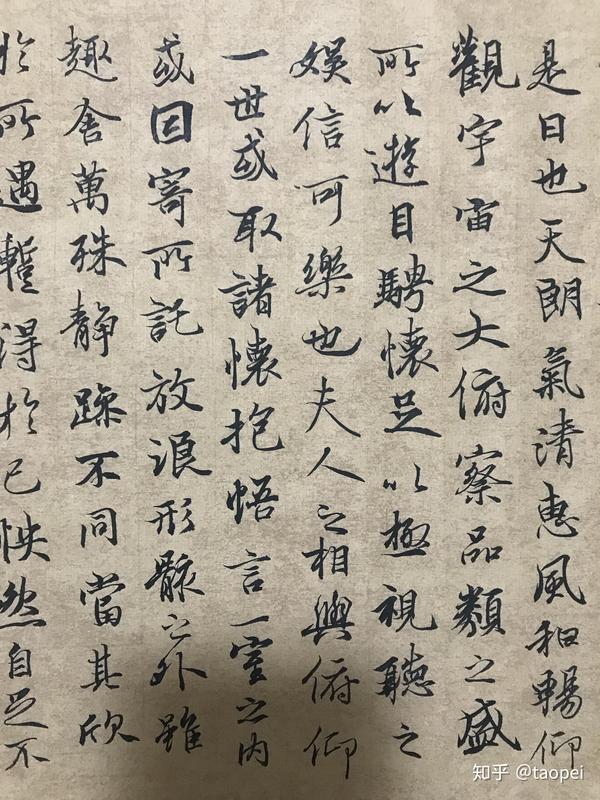 是日也天朗氣清惠風和暢仰
觀宇宙之大俯察品類之盛
所以遊目騁懷足以極視聽之
娛信可樂也夫人之相與俯仰
一世或取諸懷抱悟言一室之內
或因寄所託放浪形骸之外雖
趣舍萬殊靜躁不同當其欣
於所遇暫得於己怏然自足不
知乎 @taopei